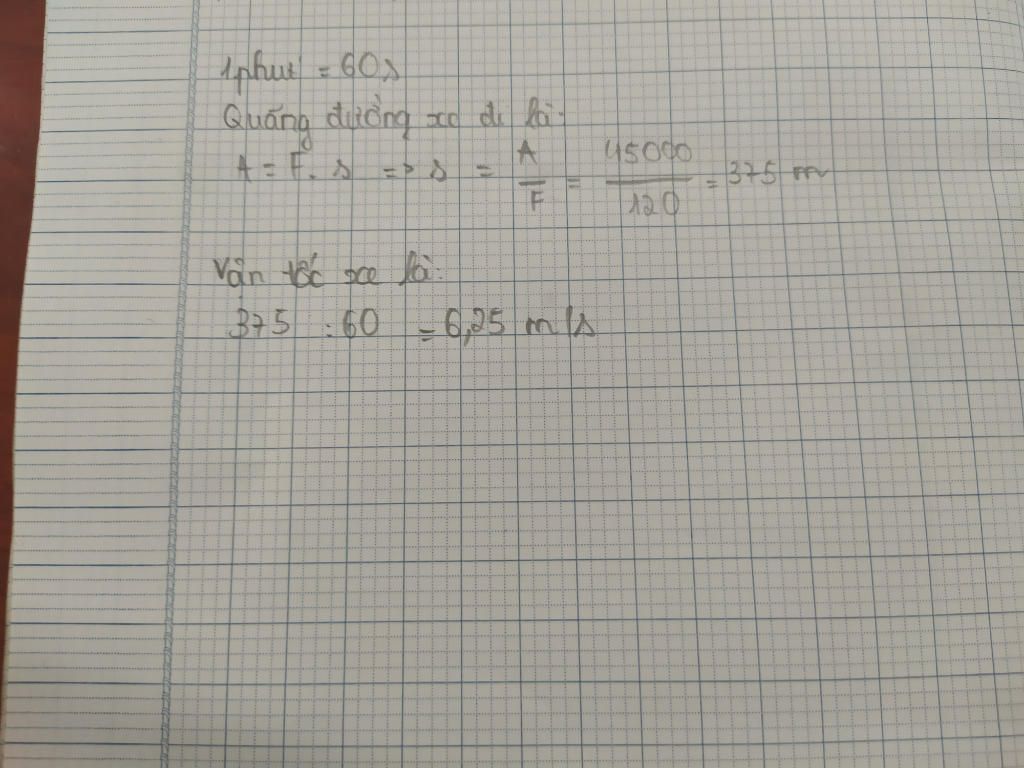 1 phút = 60s
Quãng đường xe đi là:
A = F. s => s = A/F = 45000/120 = 375 m
Vận tốc xe là:
375 : 60 = 6,25 m/s